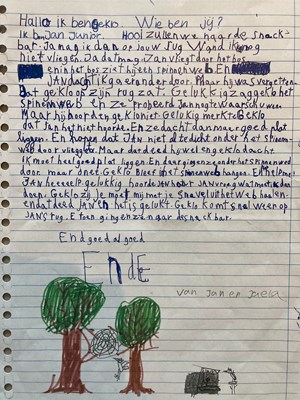 Hallo ik ben geklo. Wie ben jy?
Ik ben Jan Junior. Hooi zullen we naar de snack-
bar. Ja mag ik dan op jouw rug Wand ik mog
niet vliegen. Da da t mag. Jan vliegt door het bos
en in het bos ziet hij een spinnen web. En
JAN dacht ik ga er onder door. Maar hij was vergeten
Dat geklo of zijn rug zat. Gelukkig zag geklo het
spinnen web en ze probeerde Jan nog te waarschuwen.
Maar hij hoorden geklo niet. Geklo merkte
dat Jan het niet hoorde. En ze dacht dan maar goed plat
liggen. En hopen dat JAN niet al te dicht onder het spinnen-
web door vliegt. Maar dat deed hij wel en geklo dacht.
Ik moet heel goed plat liggen. En daar gingen ze onder het spinnen web
door. maar o nee Geklo bleef in het spinnenweb hangen. En help me!
JAN heeeelp. gelukkig hoorde JAN haar JAN vraeg wat moet ik dan
doen. Geklo zij je moet mij met je snavel uit het web haalen-
en dat deed jan en het is gelukt. Geklo komt snel weer op
JANS rug. E toen gingen ze naar de snackbar.
End goed al goed
Ende
van Jan en Jaela